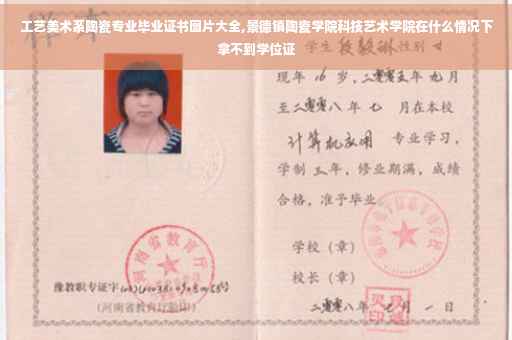 工艺美术系陶瓷专业毕业证书图片大全,景德镇陶瓷学院科技艺术学院在什么情况下
拿不到学位证
学生 性别 女
现年 16 岁，二零零五年 九月
至二零零八年 七 月在本校
计算机应用 专业学习，
学制 三 年，修业期满，成绩
合格，准予毕业
学校（章）
校长（章）
河南省教育厅
豫教职专证字
（河南省教育厅验印）
二零零八年 月 一 日